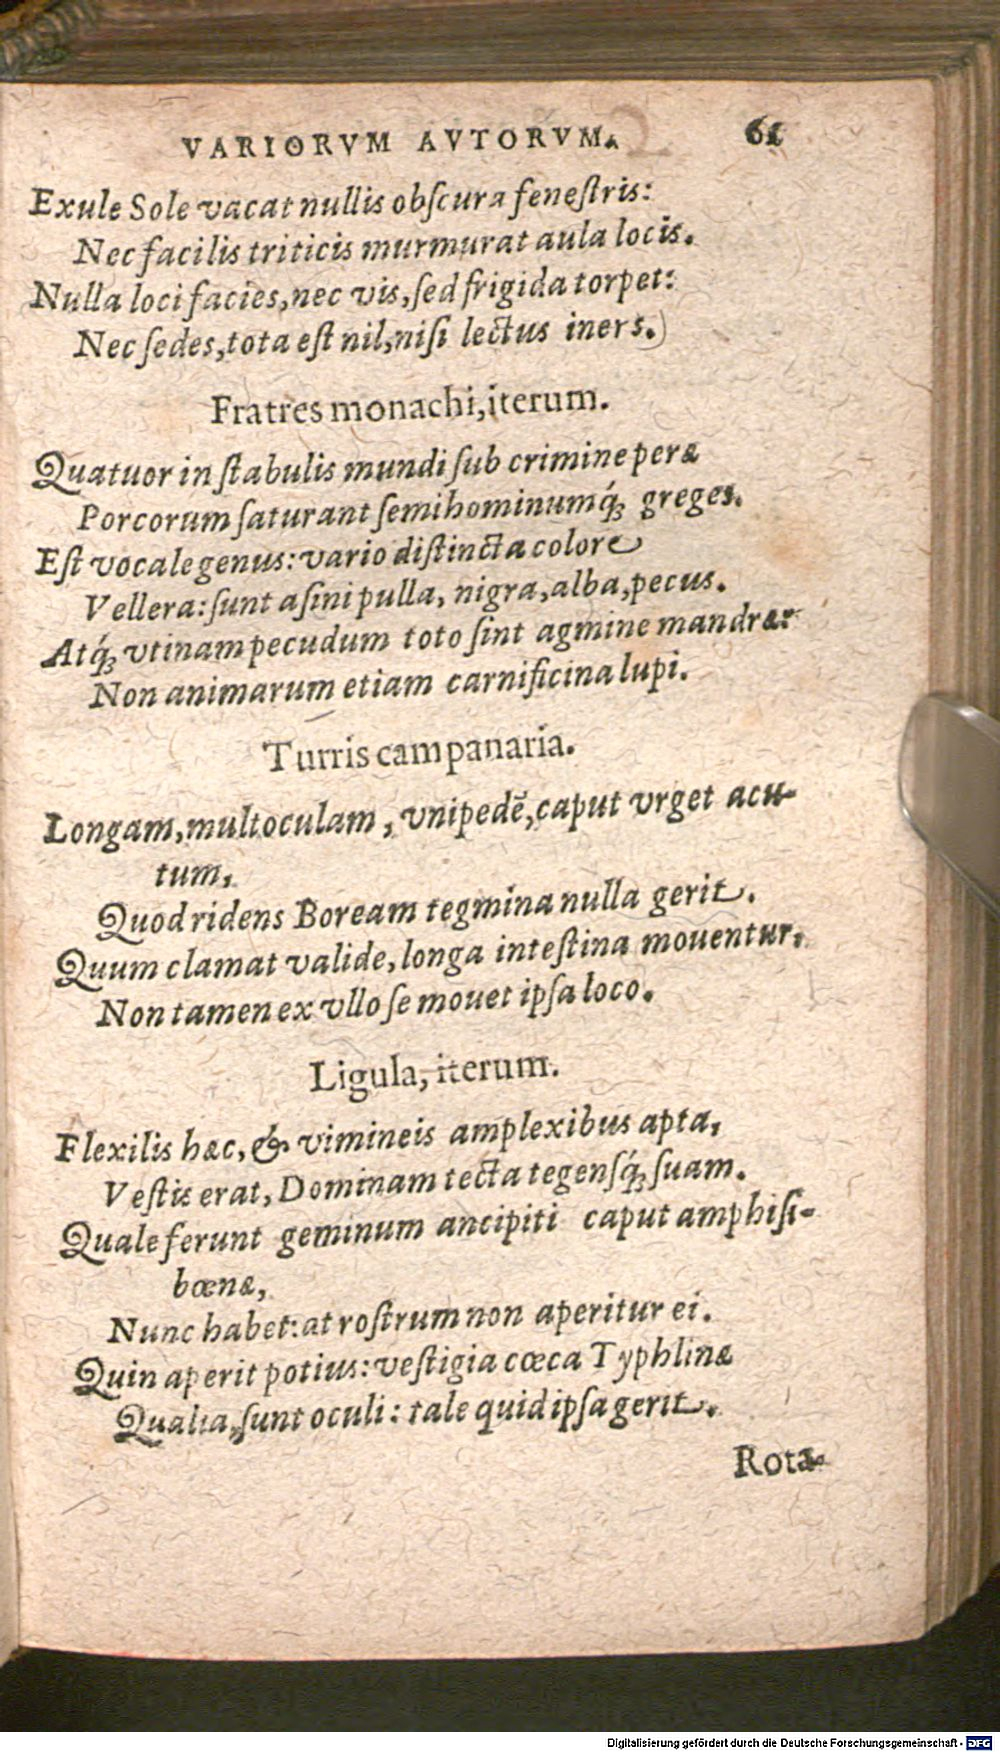 VARIORVM AVTORVM. 61
Exule Sole vacat nullis obſcura feneſtris:
Nec facilis triticis murmurat aula locis.
Nulla loci facies, nec vis, ſed frigida torpet:
Nec ſedes, tota eſt nil, niſi lectus iners.
Fratres monachi, iterum.
Quatuor in ſtabulis mundi ſub crimine peræ
Porcorum ſaturant ſemihominumq́; greges.
Eſt vocale genus: vario diſtincta colore
Vellera: ſunt aſini pulla, nigra, alba, pecus.
Atq́; vtinam pecudum toto ſint agmine mandræ:
Non animarum etiam carnificina lupi.
Turris campanaria.
Longam, multoculam, vnipedē, caput vrget acu-
tum,
Quod ridens Boream tegmina nulla gerit.
Quum clamat valide, longa inteſtina mouentur,
Non tamen ex vllo ſe mouet ipſa loco.
Ligula, iterum.
Flexilis hæc, & vimineis amplexibus apta,
Veſtis erat, Dominam tecta tegenſq́; ſuam.
Quale ferunt geminum ancipiti caput amphiſi-
bœnæ,
Nunc habet: at roſtrum non aperitur ei.
Quin aperit potius: veſtigia cœca Typhlinæ
Qualia, ſunt oculi: tale quid ipſa gerit.
Rota
Digitalisierung gefördert durch die Deutsche Forschungsgemeinschaft - DFG